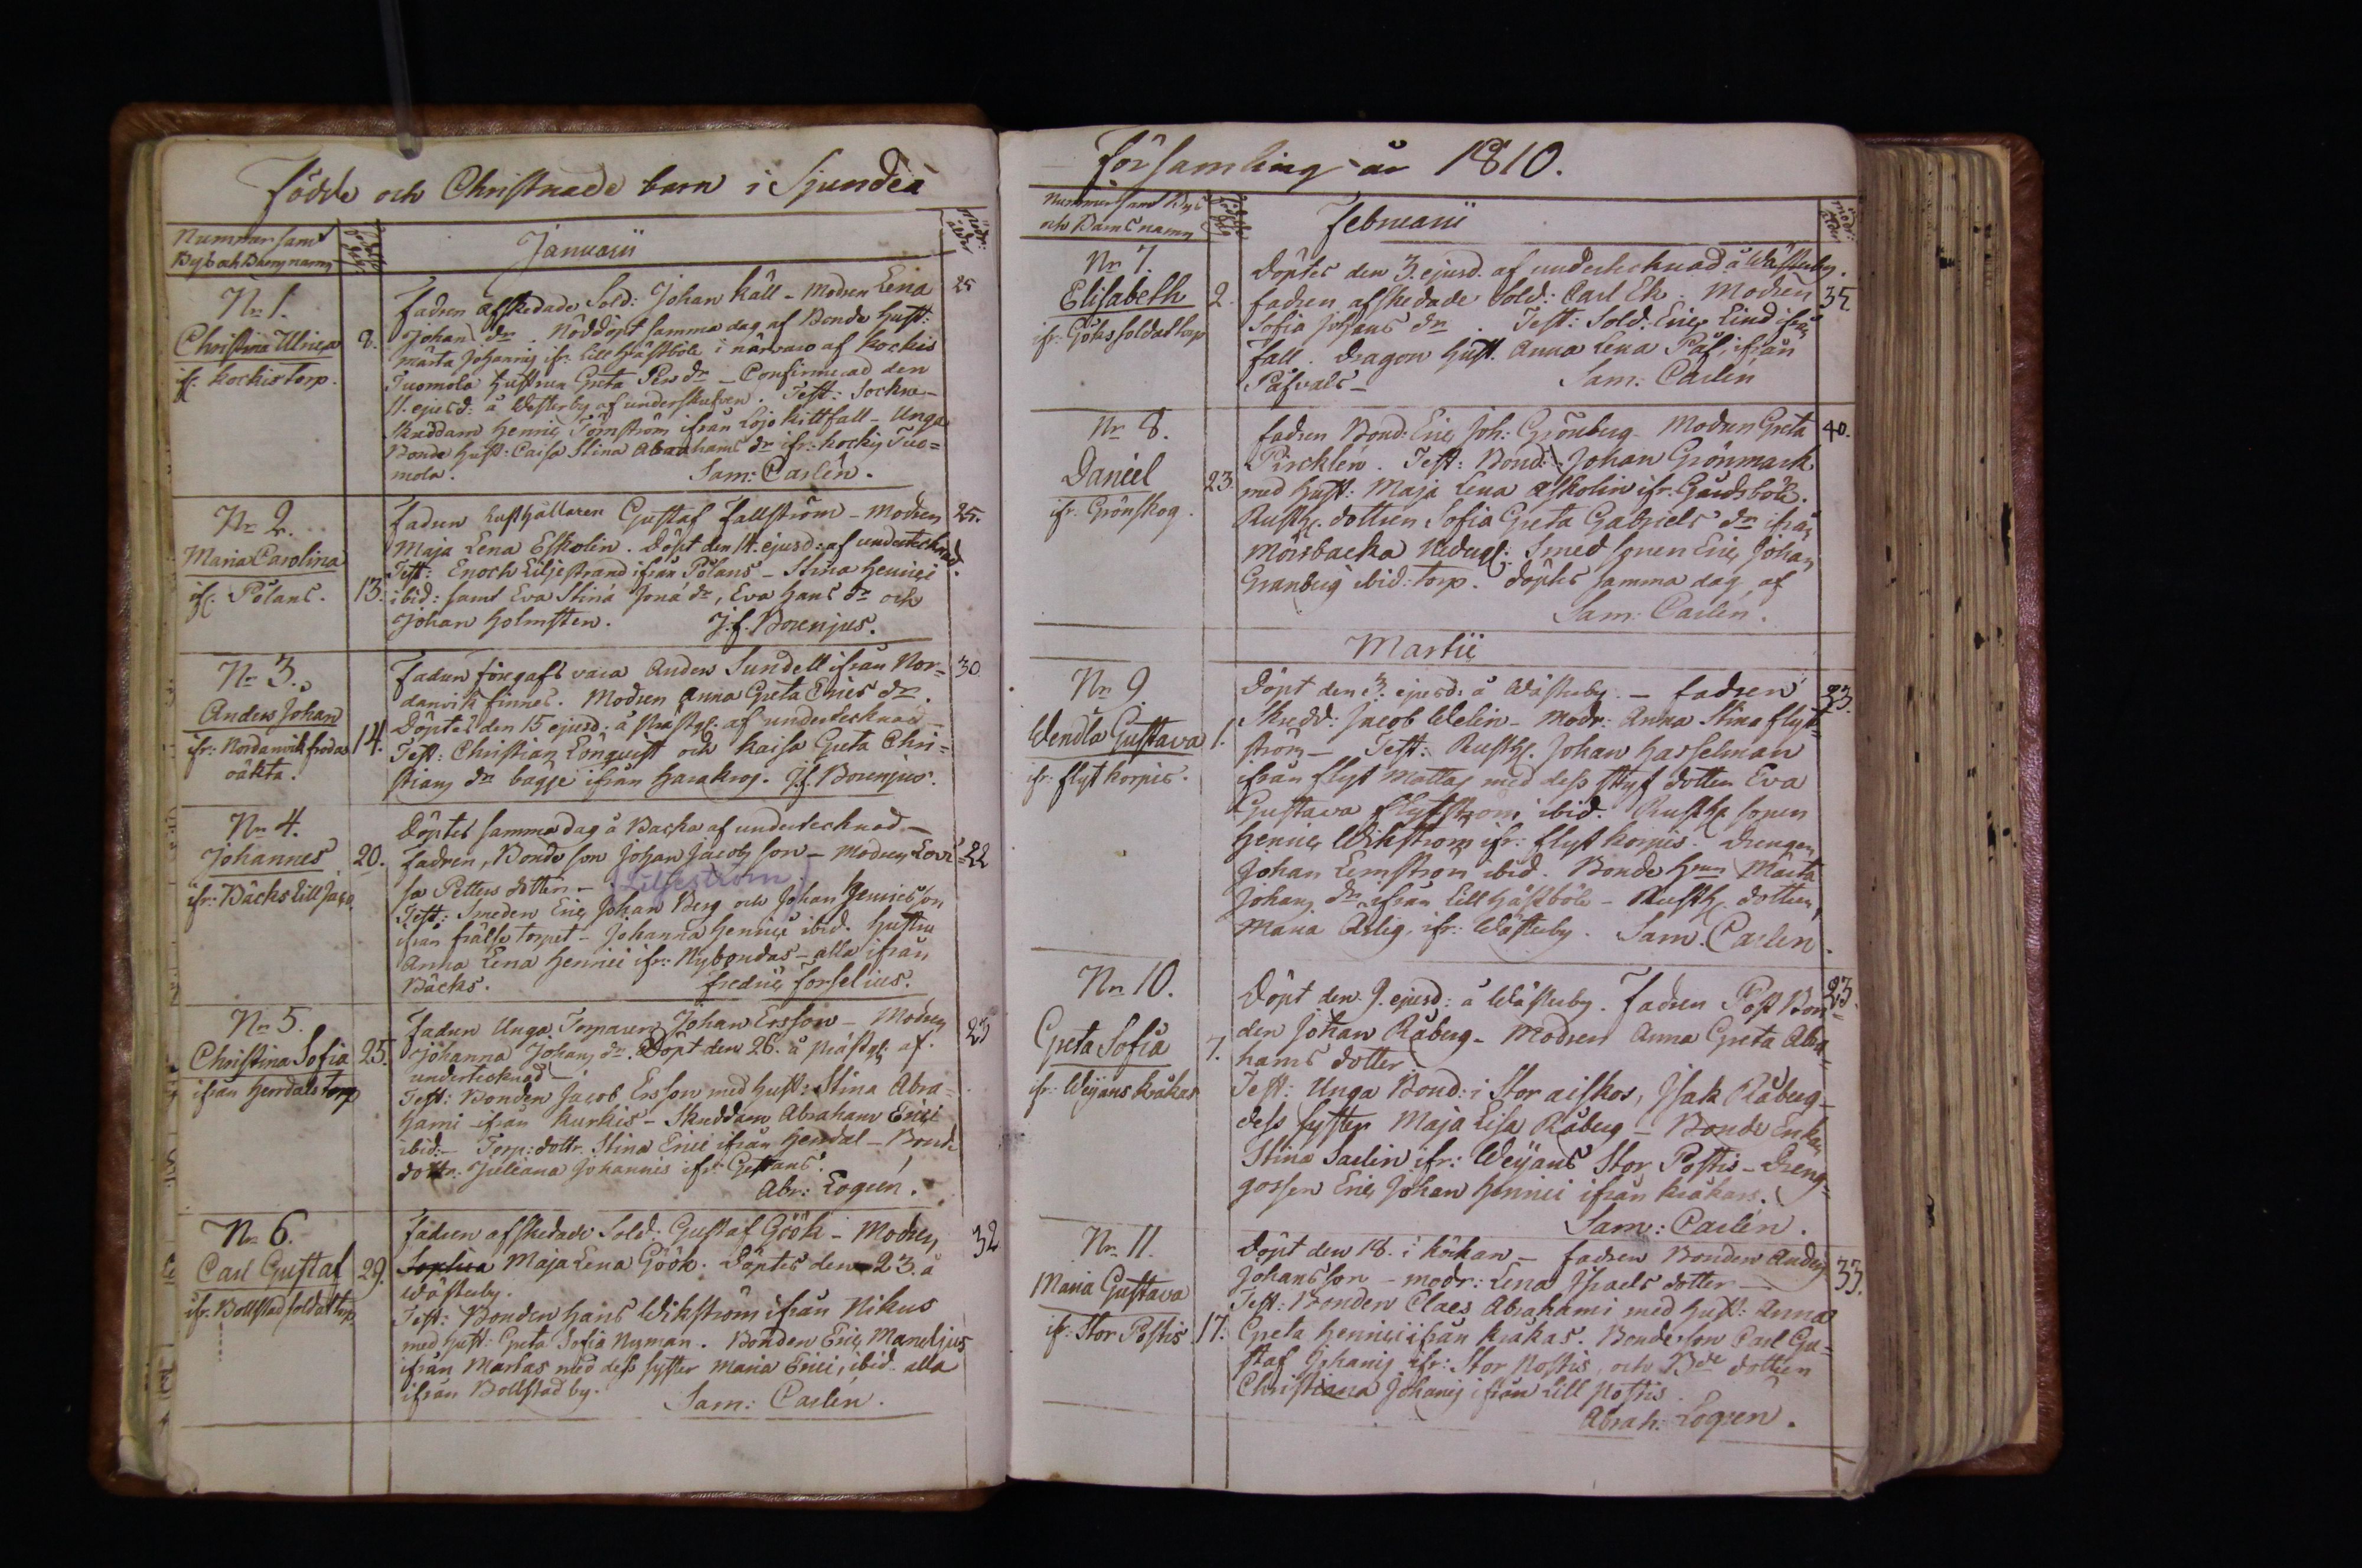 Födde och Christnade barn i Sjundeå
Nummer samt
Bys och Barns namn
Januarii
Modr: ålder
Nr 1.
Christina Ulrica
ifr: Kockis torp.
8.
Fadren afskedade Sold: Johan Käll - Modren Lena
Johans dr. Nöddöpt samma dag af Bonde Hust:
Märta Johannis ifr: Lill Hästböle i närvaro af Kockis
Tuomola Hustrun Greta Pers dr - Confirmerad den
11. ejusd: å Westerby af underskrefven. Test: Sockne-
skräddare Henric Törnström ifrån Lojo Kittfall - Unga
Bonde Hust: Caisa Stina Abrahams dr ifr: Kockis Tuo=
mola. Sam: Carlén.
25
Nr 2.
Maria Carolina
ifr. Pölans.
13.
Fadren Rusthållaren Gustaf Fallström - Modren
Maja Lena Eskolin. Döpt den 14. ejusd: af undertecknad.
Test: Enoch Liljestrand ifrån Pölans - Stina Henrici
ibid: samt Eva Stina Jona dr, Eva Hans dr och
Johan Holmsten. J. f. Borenius.
25.
Nr 3.
Anders Johan
ifr: Nordanvik
oäkta.
14.
Fadren föregafs vara Anders Sundell ifrån Nor=
danvik finnes. Modren Anna Greta Erics dr.
Döptes den 15 ejusd. å Prästg: af undertecknad -
Test: Christian Lönquist och Kaisa Greta Chri=
stians dr bagge ifrån Harakrog. J.f. Borenius.
30
Nr 4.
Johannes
ifr: Bäcks Lill Jass
20.
Döptes samma dag å Backa af undertecknad -
Fadren, Bonde son Johan Jacobs son - Modren Lovi=
sa Petters dotter - (Liljeström)
Test: Smeden Eric Johan Berg och Johan Henricsson
ifrån frälse torpet - Johanna Henrici ibid. Hustru
Anna Lena Henrici ifr: Nybondas - alla ifrån
Bäcks. Fredric Forselius.
22
Nr 5.
Christina Sofia
ifrån Herrdals torp
25.
Fadren Unga Torparen Johan Ersson - Modren
Johanna Johans dr Döpt den 26. å Prästg: af
undertecknad -
Test: Bonden Jacob Ersson med Hust: Stina Abra=
hami ifrån Kurkis - Skräddaren Abraham Erici
ibid: - Torp: dottr. Stina Erici ifrån Herrdal - Bonde
dottr: Juliana Johannis ifr: Gettans.
Abr: Logrén.
23
Nr 6.
Carl Gustaf
ifr: Bollstad soldat torp
29.
Fadren afskedade Sold. Gustaf Göök - Modren
Sophia Maja Lena Göök. Döptes den 23. å
Wästerby.
Test: Bonden Hans Wikström ifrån Nikus
med Hust: Greta Sofia Nyman. Bonden Eric Mandelius
ifrån Markas med dess syster Maria Erici, ibid. alla
ifrån Bollstad by. Sam: Carlén.
32
Församling år 1810.
Nummer samt Bys
och Barns namn
Februarii
Modr: ålder
Nr 7.
Elisabeth
ifr: Göks soldat torp
2.
Döptes den 3. ejusd. af undertecknad å Wästerby.
Fadren afskedade Sold: Carl Ek. Modren
Sofia Johans dr. Test: Sold: Eric Lind ifrån
Fall. Dragon Hust. Anna Lena Påf, ifrån
Påfvals - Sam: Carlén
35.
Nr 8.
Daniel
ifr. Grönskog.
23.
Fadren Bond: Eric Joh: Grönberg - Modren Greta
Pircklén. Test: Bond: Johan Grönmark
med Hust: Maja Lena Eskolin ifr. Gårdsböle.
Rusth: dottren Sofia Greta Gabriels dr ifrån
Mörsbacka Nedergl: Smed sonen Eric Johan
Granberg ibid: torp. Döptes samma dag af
Sam: Carlén.
40.
Martii
Nr 9
Wendla Gustava
ifr: Flyt Korpis.
1.
Döpt den 3. ejusd: å Wästerby. - Fadren
Skrädd: Jacob Welin - Modr: Anna Stina Flyt=
ström - Test: Rusth: Johan Hasselman
ifrån Flyt Mattas med dess styf dotter Eva
Gustava Flytström, ibid. Rusth: sonen
Henric Wikström ifr: Flyt Korpis. Drengen
Johan Lemström ibid. Bonde Hrun Märta
Johans dr ifrån Lill Hästböle - Rusth: dottren
Maria Arlig, ifr: Wästerby. Sam. Carlén.
23.
Nr 10.
Greta Sofia
ifr: Weijans Kråkas
7.
Döpt den 9. ejusd: å Wästerby. Fadren Post Bon=
den Johan Råberg - Modren Anna Greta Abra=
hams dotter
Test: Unga Bond: i Stor aiskos, Isak Råberg -
dess syster Maja Lisa Råberg - Bonde Enkan
Stina Sarlin ifr: Weijans Stor Postis - Dreng=
gossen Eric Johan Henrici ifrån Kråkars.
Sam: Carlén.
23.
Nr 11.
Maria Gustava
ifr: Stor Postis
17.
Döpt den 18. i kyrkan - Fadren Bonden Anders
Johansson - modr: Lena Israels dotter -
Test: Bonden Claes Abrahami med Hust: Anna
Greta Henrici ifrån Kråkas. Bonde son Carl Gu=
staf Johannis ifr: Stor Postis, och Bde dottren
Christiana Johannis ifrån Lill Postis.
Abrah: Logren.
33.